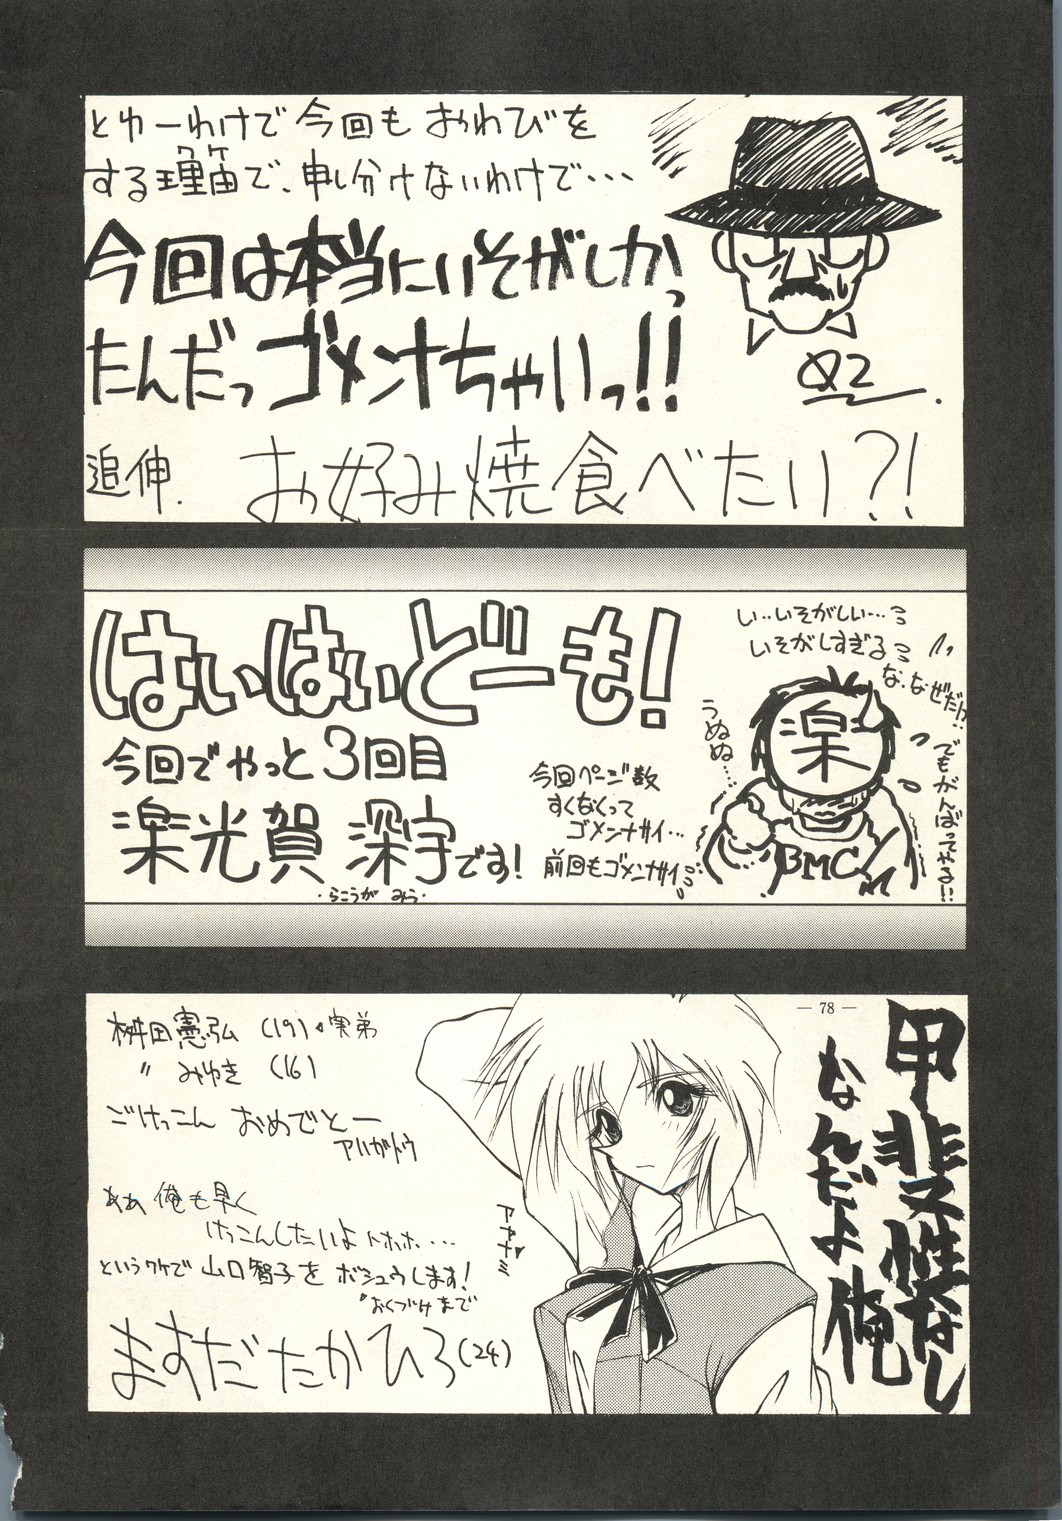 とゆーわけで今回もおわびを
する理由で、申し分けないわけで…
ワケ
今回は本当にいそがしかっ
たんだっゴメンナちゃいっ!!
追伸. お好み焼食べたい?!
はいはいどーも!
今回でやっと3回目
楽光賀 深宇です!
・らこうが みう・
今回ページ数
すくなくって
ゴメンナサイ…
前回もゴメンナサイ
い‥いそがしい…
いそがしすぎる
な、なぜだ!?
うぬぬ…
でもがんばってやる!!
楽
BMC
— 78 —
甲斐性なし
なんだよ俺
桝田憲弘 (19) 実弟
〃 みゆき (16)
ごけっこん おめでとー
アリガトウ
ああ 俺も早く
けっこんしたいよ トホホ…
というワケで 山口智子を ボシュウします!
おくづけまで
ますだたかひろ(24)